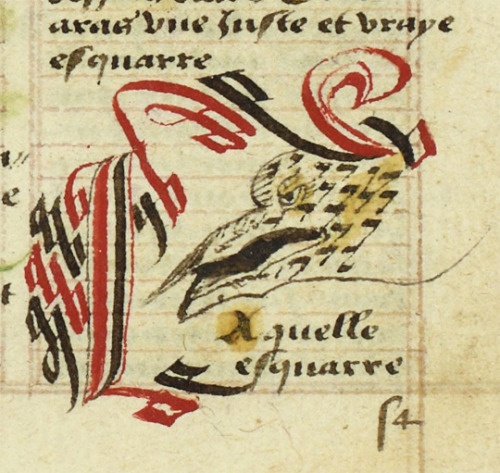 aras vne Juste et vraye
esquarre
Aquelle
esquarre
54